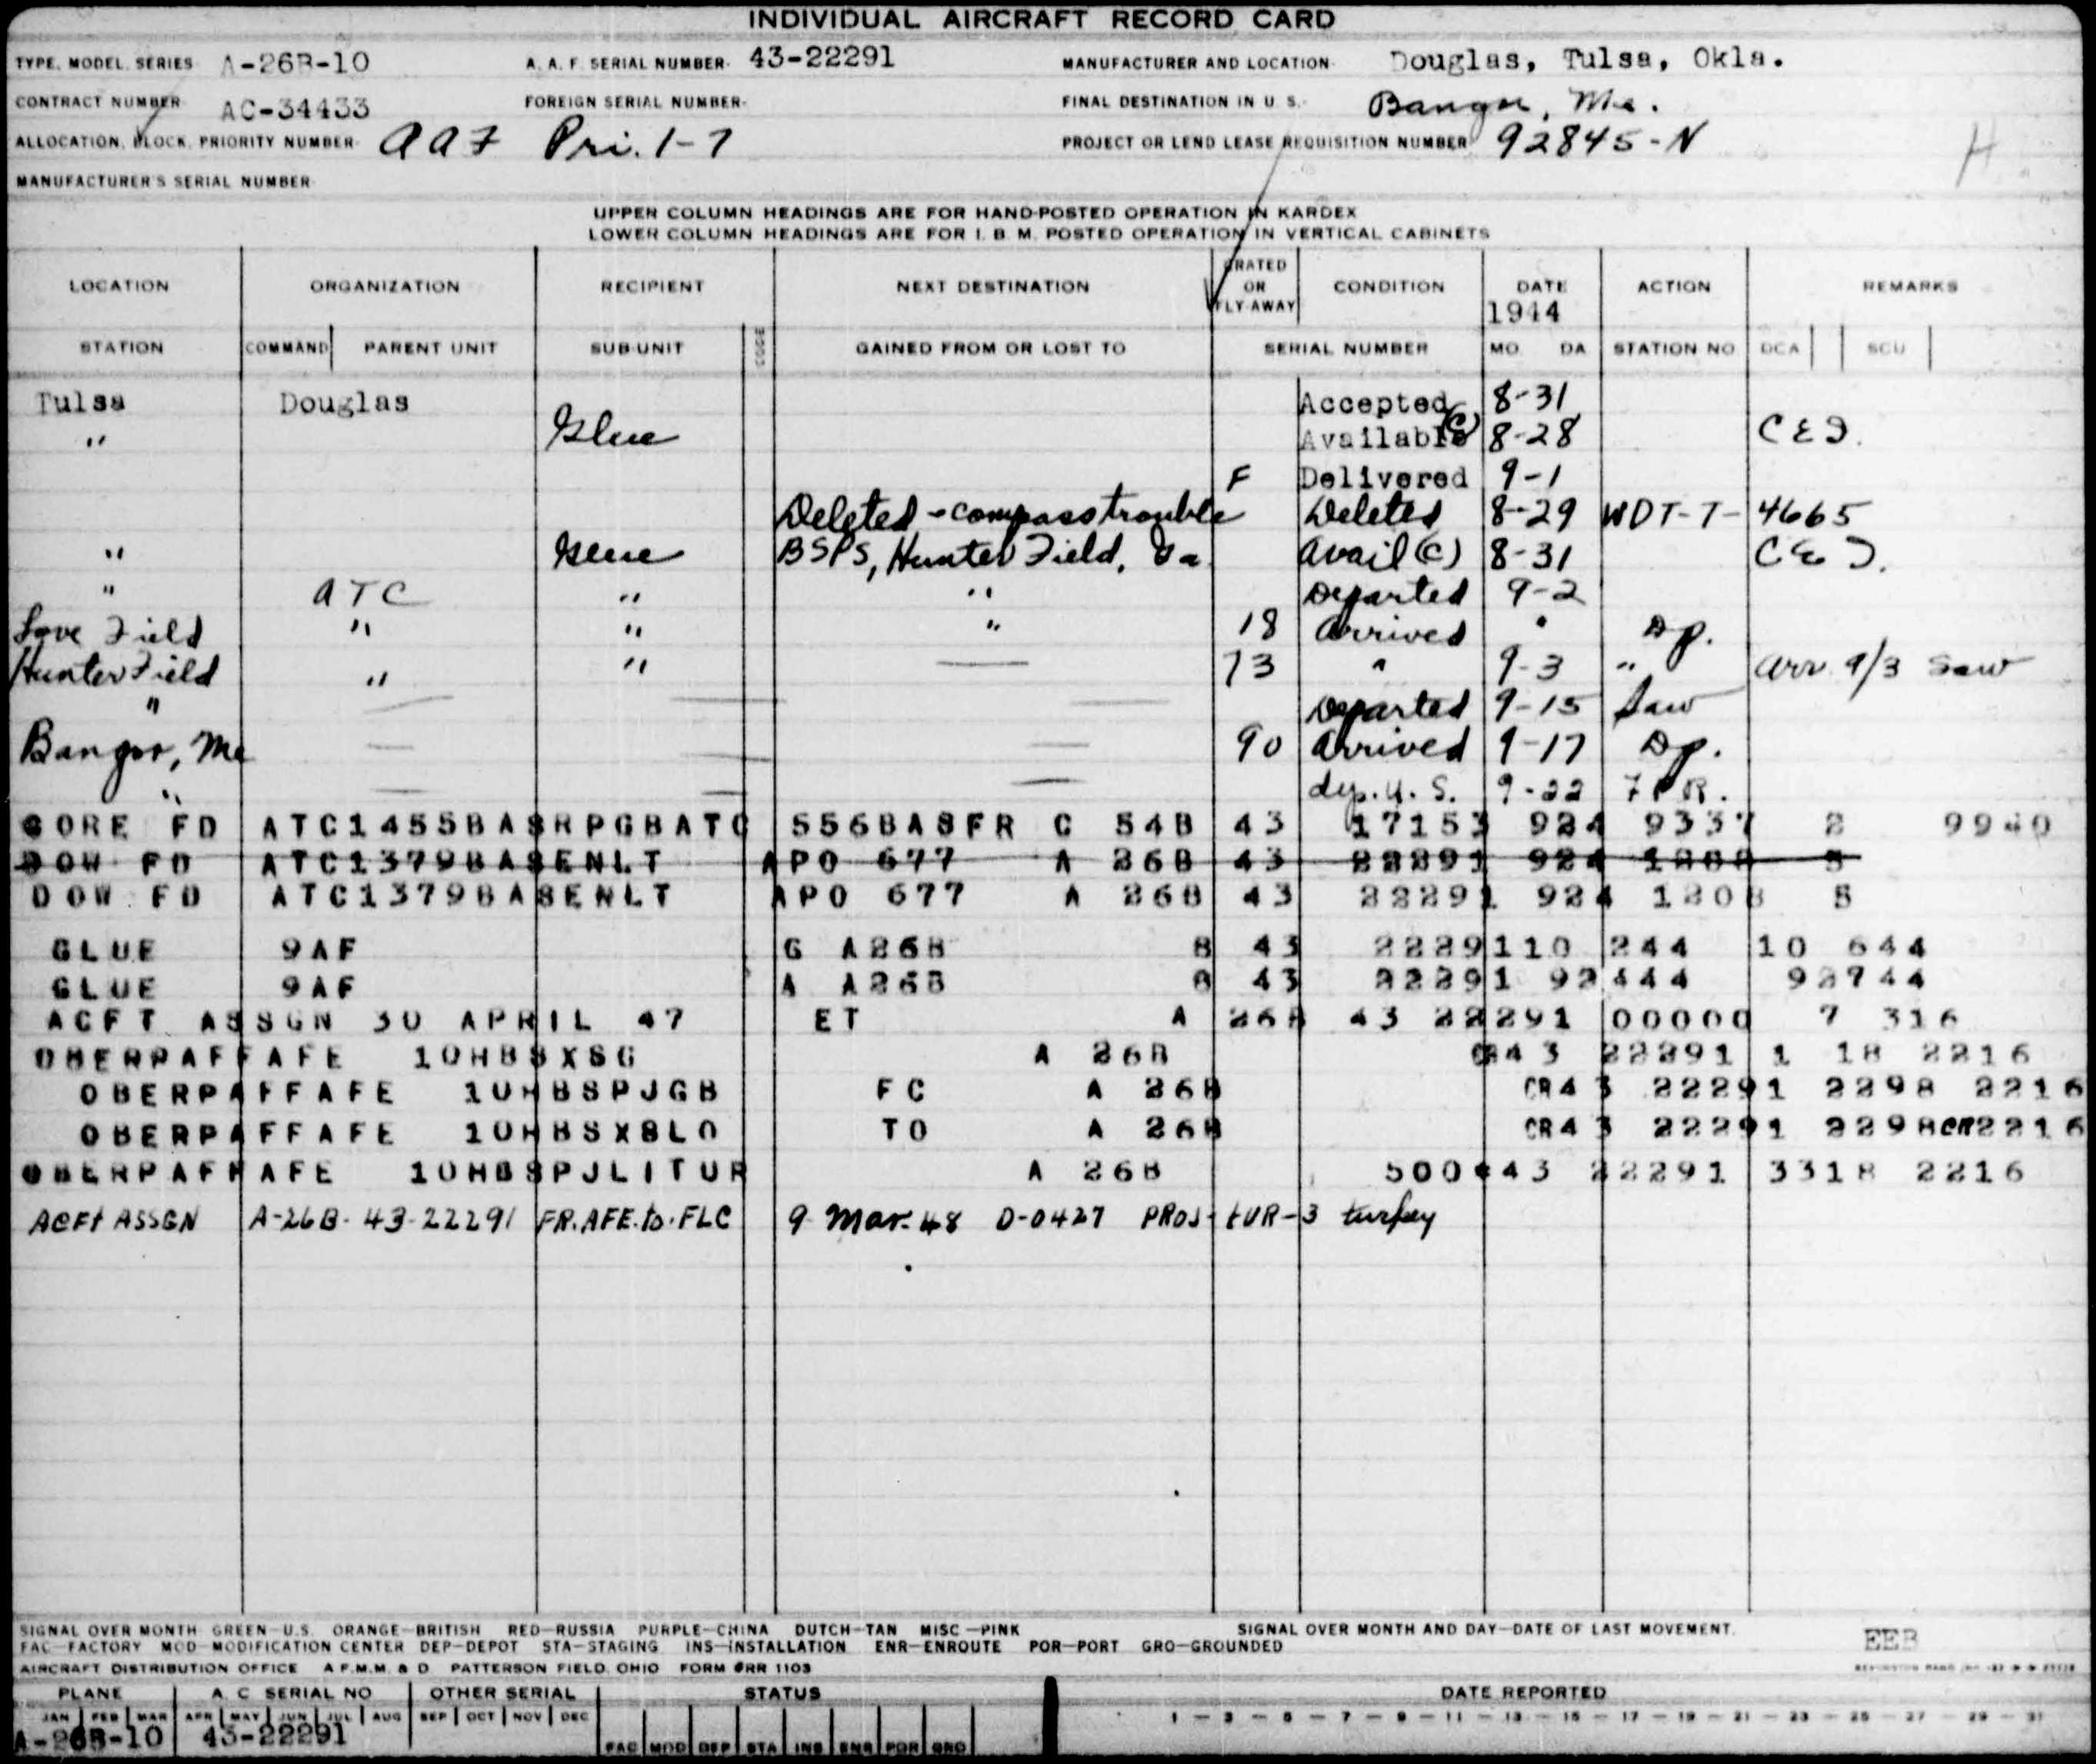 INDIVIDUAL AIRCRAFT RECORD CARD
TYPE, MODEL, SERIES A-26B-10 A. A. F. SERIAL NUMBER 43-22291 MANUFACTURER AND LOCATION Douglas, Tulsa, Okla.
CONTRACT NUMBER AC-34433 FOREIGN SERIAL NUMBER FINAL DESTINATION IN U. S. Bangor, Me.
ALLOCATION, BLOCK, PRIORITY NUMBER AAF Pri. 1-7 PROJECT OR LEND LEASE REQUISITION NUMBER 92845-N H
MANUFACTURER'S SERIAL NUMBER
UPPER COLUMN HEADINGS ARE FOR HAND-POSTED OPERATION IN KARDEX
LOWER COLUMN HEADINGS ARE FOR I. B. M. POSTED OPERATION IN VERTICAL CABINETS
LOCATION ORGANIZATION RECIPIENT NEXT DESTINATION CRATED OR FLY-AWAY CONDITION DATE 1944 ACTION REMARKS
STATION COMMAND PARENT UNIT SUB-UNIT CODE GAINED FROM OR LOST TO SERIAL NUMBER MO. DA STATION NO DCA SCU
Tulsa Douglas Accepted 8-31
" Glue Available (C) 8-28 C & I.
F Delivered 9-1
Deleted - compass trouble Deleted 8-29 WDT-T-4665
" Glue BSPS, Hunter Field, Ga. Avail (C) 8-31 C & I.
" ATC " " Departed 9-2
Love Field " " " 18 Arrived " Dp.
Hunter Field " " — 73 " 9-3 " Arr. 9/3 Saw
" — — Departed 9-15 Saw
Bangor, Me — — — 90 Arrived 9-17 Dp.
" — — — dep. U. S. 9-22 FPR.
GORE FD ATC1455BASRPGBATC 556BASFR C 54B 43 17153 924 9337 2 9940
DOW FD ATC1379BASENLT APO 677 A 26B 43 22291 924 1208 5
DOW FD ATC1379BASENLT APO 677 A 26B 43 22291 924 1208 5
GLUE 9AF G A26B B 43 2229110 244 10 644
GLUE 9AF A A26B B 43 22291 92444 92744
ACFT ASSGN 30 APRIL 47 ET A 26B 43 22291 00000 7 316
OBERPAFFAFE 10HBSXSG A 26B CR43 22291 1 18 2216
OBERPAFFAFE 10HBSPJGB FC A 26B CR43 22291 2298 2216
OBERPAFFAFE 10HBSXSLO TO A 26B CR43 22291 2298CR2216
OBERPAFFAFE 10HBSPJLITUR A 26B 500*43 22291 3318 2216
ACFt ASSGN A-26B-43-22291 FR.AFE.to.FLC 9 Mar-48 D-0427 PROJ-tUR-3 turkey
SIGNAL OVER MONTH GREEN—U.S. ORANGE—BRITISH RED—RUSSIA PURPLE—CHINA DUTCH—TAN MISC—PINK SIGNAL OVER MONTH AND DAY—DATE OF LAST MOVEMENT.
FAC—FACTORY MOD—MODIFICATION CENTER DEP—DEPOT STA—STAGING INS—INSTALLATION ENR—ENROUTE POR—PORT GRO—GROUNDED EEB
AIRCRAFT DISTRIBUTION OFFICE A.F.M.M. & D PATTERSON FIELD, OHIO FORM #RR 1103
PLANE A. C. SERIAL NO OTHER SERIAL STATUS DATE REPORTED
JAN FEB MAR APR MAY JUN JUL AUG SEP OCT NOV DEC 1 — 3 — 5 — 7 — 9 — 11 — 13 — 15 — 17 — 19 — 21 — 23 — 25 — 27 — 29 — 31
A-26B-10 43-22291 FAC MOD DEP STA INS ENR POR GRO